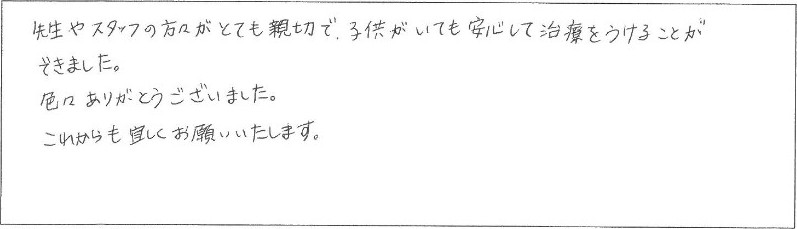 先生やスタッフの方々がとても親切で、子供がいても安心して治療をうけることが
できました。
色々ありがとうございました。
これからも宜しくお願いいたします。